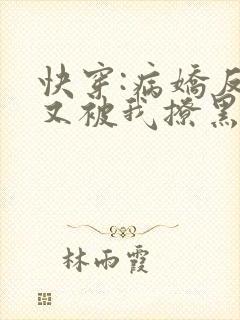 快穿:病娇反
又被我撩黑
林雨霞